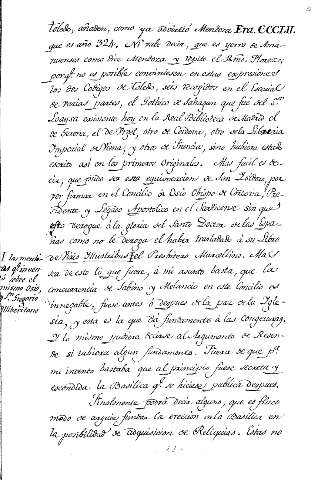 toledo, añaden, como ya advirtió Mendoza Era. CCCLXII.
que es año 324. Ni vale decir, que es yerro de Ama-
nuenses como dice Mendoza y repite el Rmo. Florez:
porq.e no es posible conviniesen en estas expresiones
los dos Codigos de Toledo, seis recogidos en el Escurial
de varias partes, el Gothico de Sahagun que fue del S.r
Loaysa existente hoy en la Real Bibliotheca de Madrid el
de Gerona, el de Urgel, otro de Cordova, otro de la Libreria
Imperial de Viena, y otros de Francia, sino hubiera estado
escrito así en los primeros originales. Mas facil es de-
cir, que todo sea esta equivocacion de San Isidoro, por
ver firmar en el Concilio a Osio Obispo de Cordova, Pre-
sidente y Legado Apostolico en el Sardicense sin que
esto derogue à la gloria del Santo Doctor de las Espa-
ñas como no le deroga el haber trasladado à su Libro
de Viris Illustribus el Presbitero Marcellino. Mas
sea de esto lo que fuere, a mi asunto basta, que la
concurrencia de Sabino y Melancio en este Concilio es
innegable, fuese antes ó despues de la paz de la Igle-
sia, y esta es la que dà fundamento à las Congeturas.
Y lo mismo pudiera decirse al Argumento de Resen-
de si tubiera algun fundamento. Fuera de que p.a
mi intento bastaba que al principio fuese secreta y
escondida la Basilica q.e se hiciese publica despues.
Finalmente podrá decir alguno, que es flaco
modo de arguir fundar la ereccion de la Basilica en
la posibilidad de adquisicion de Reliquias. Estas no